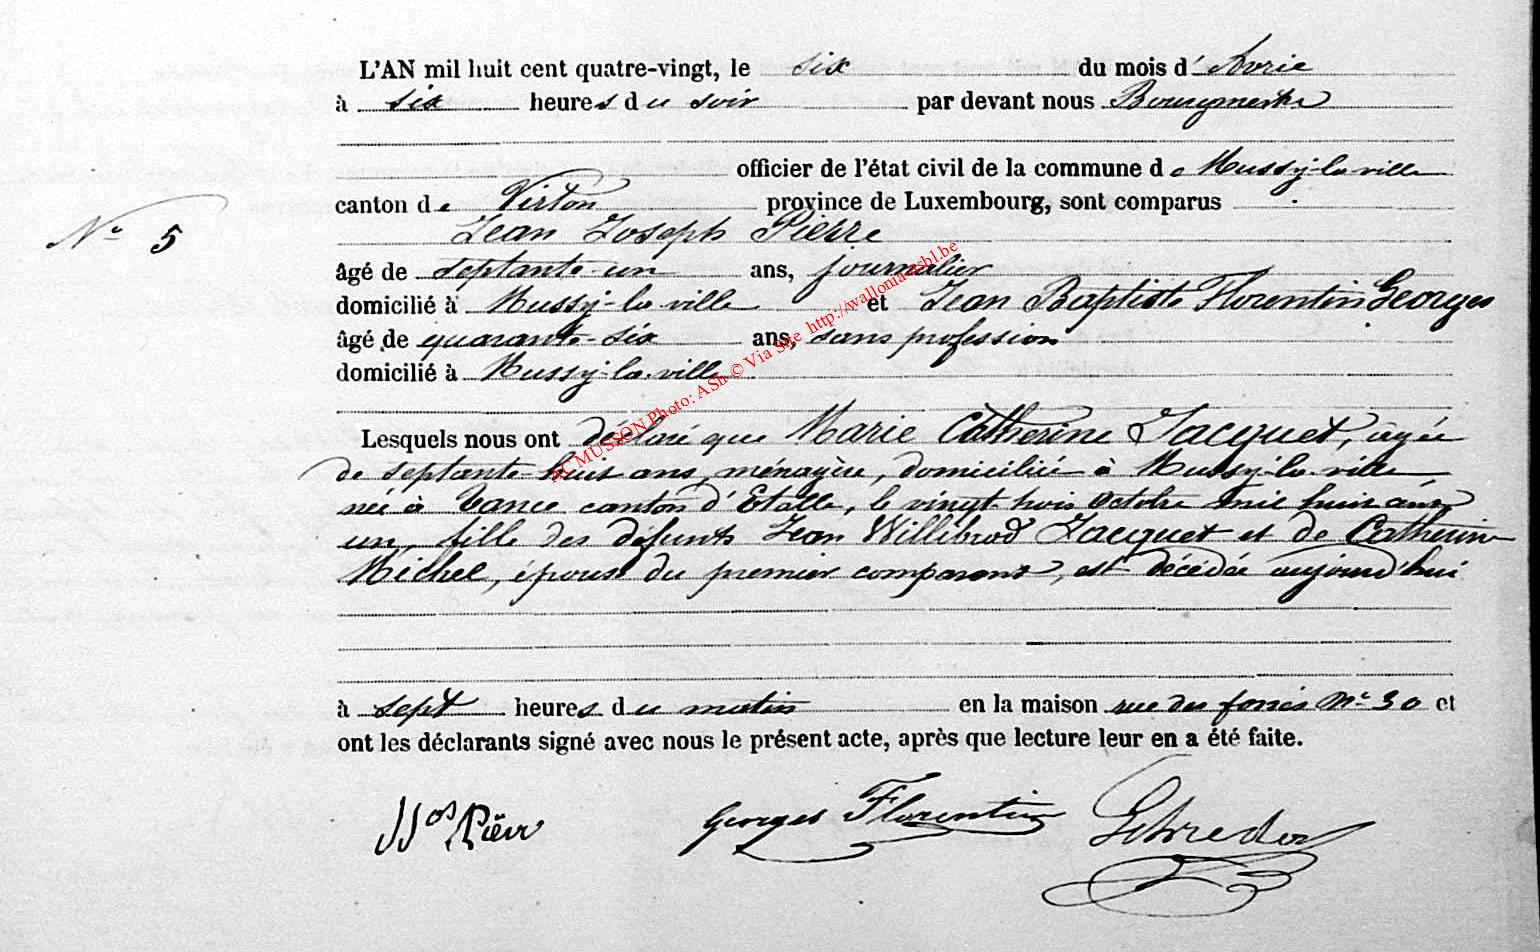 L'AN mil huit cent quatre-vingt, le six du mois d'Avril
à six heures du soir par devant nous Bourgmestre
officier de l'état civil de la commune de Mussy-la-ville
canton de Virton province de Luxembourg, sont comparus
N° 5
Jean Joseph Pierre
âgé de septante-un ans, journalier
domicilié à Mussy-la-ville et Jean Baptiste Florentin Georges
âgé de quarante-six ans, sans profession
domicilié à Mussy-la-ville
AC MUSSON Photo: ASh © Via Site http://wallonia-asbl.be
Lesquels nous ont déclaré que Marie Catherine Jacquet, âgée
de septante-huit ans, ménagère, domiciliée à Mussy-la-ville
née à Vance canton d'Etalle, le vingt trois Octobre mil huit cent
un, fille des défunts Jean Willibrod Jacquet et de Catherine
Michel, épouse du premier comparant, est décédée aujourd'hui
à sept heures du matin en la maison rue des fossés N° 30 et
ont les déclarants signé avec nous le présent acte, après que lecture leur en a été faite.
JJos Pierr Georges Florentin